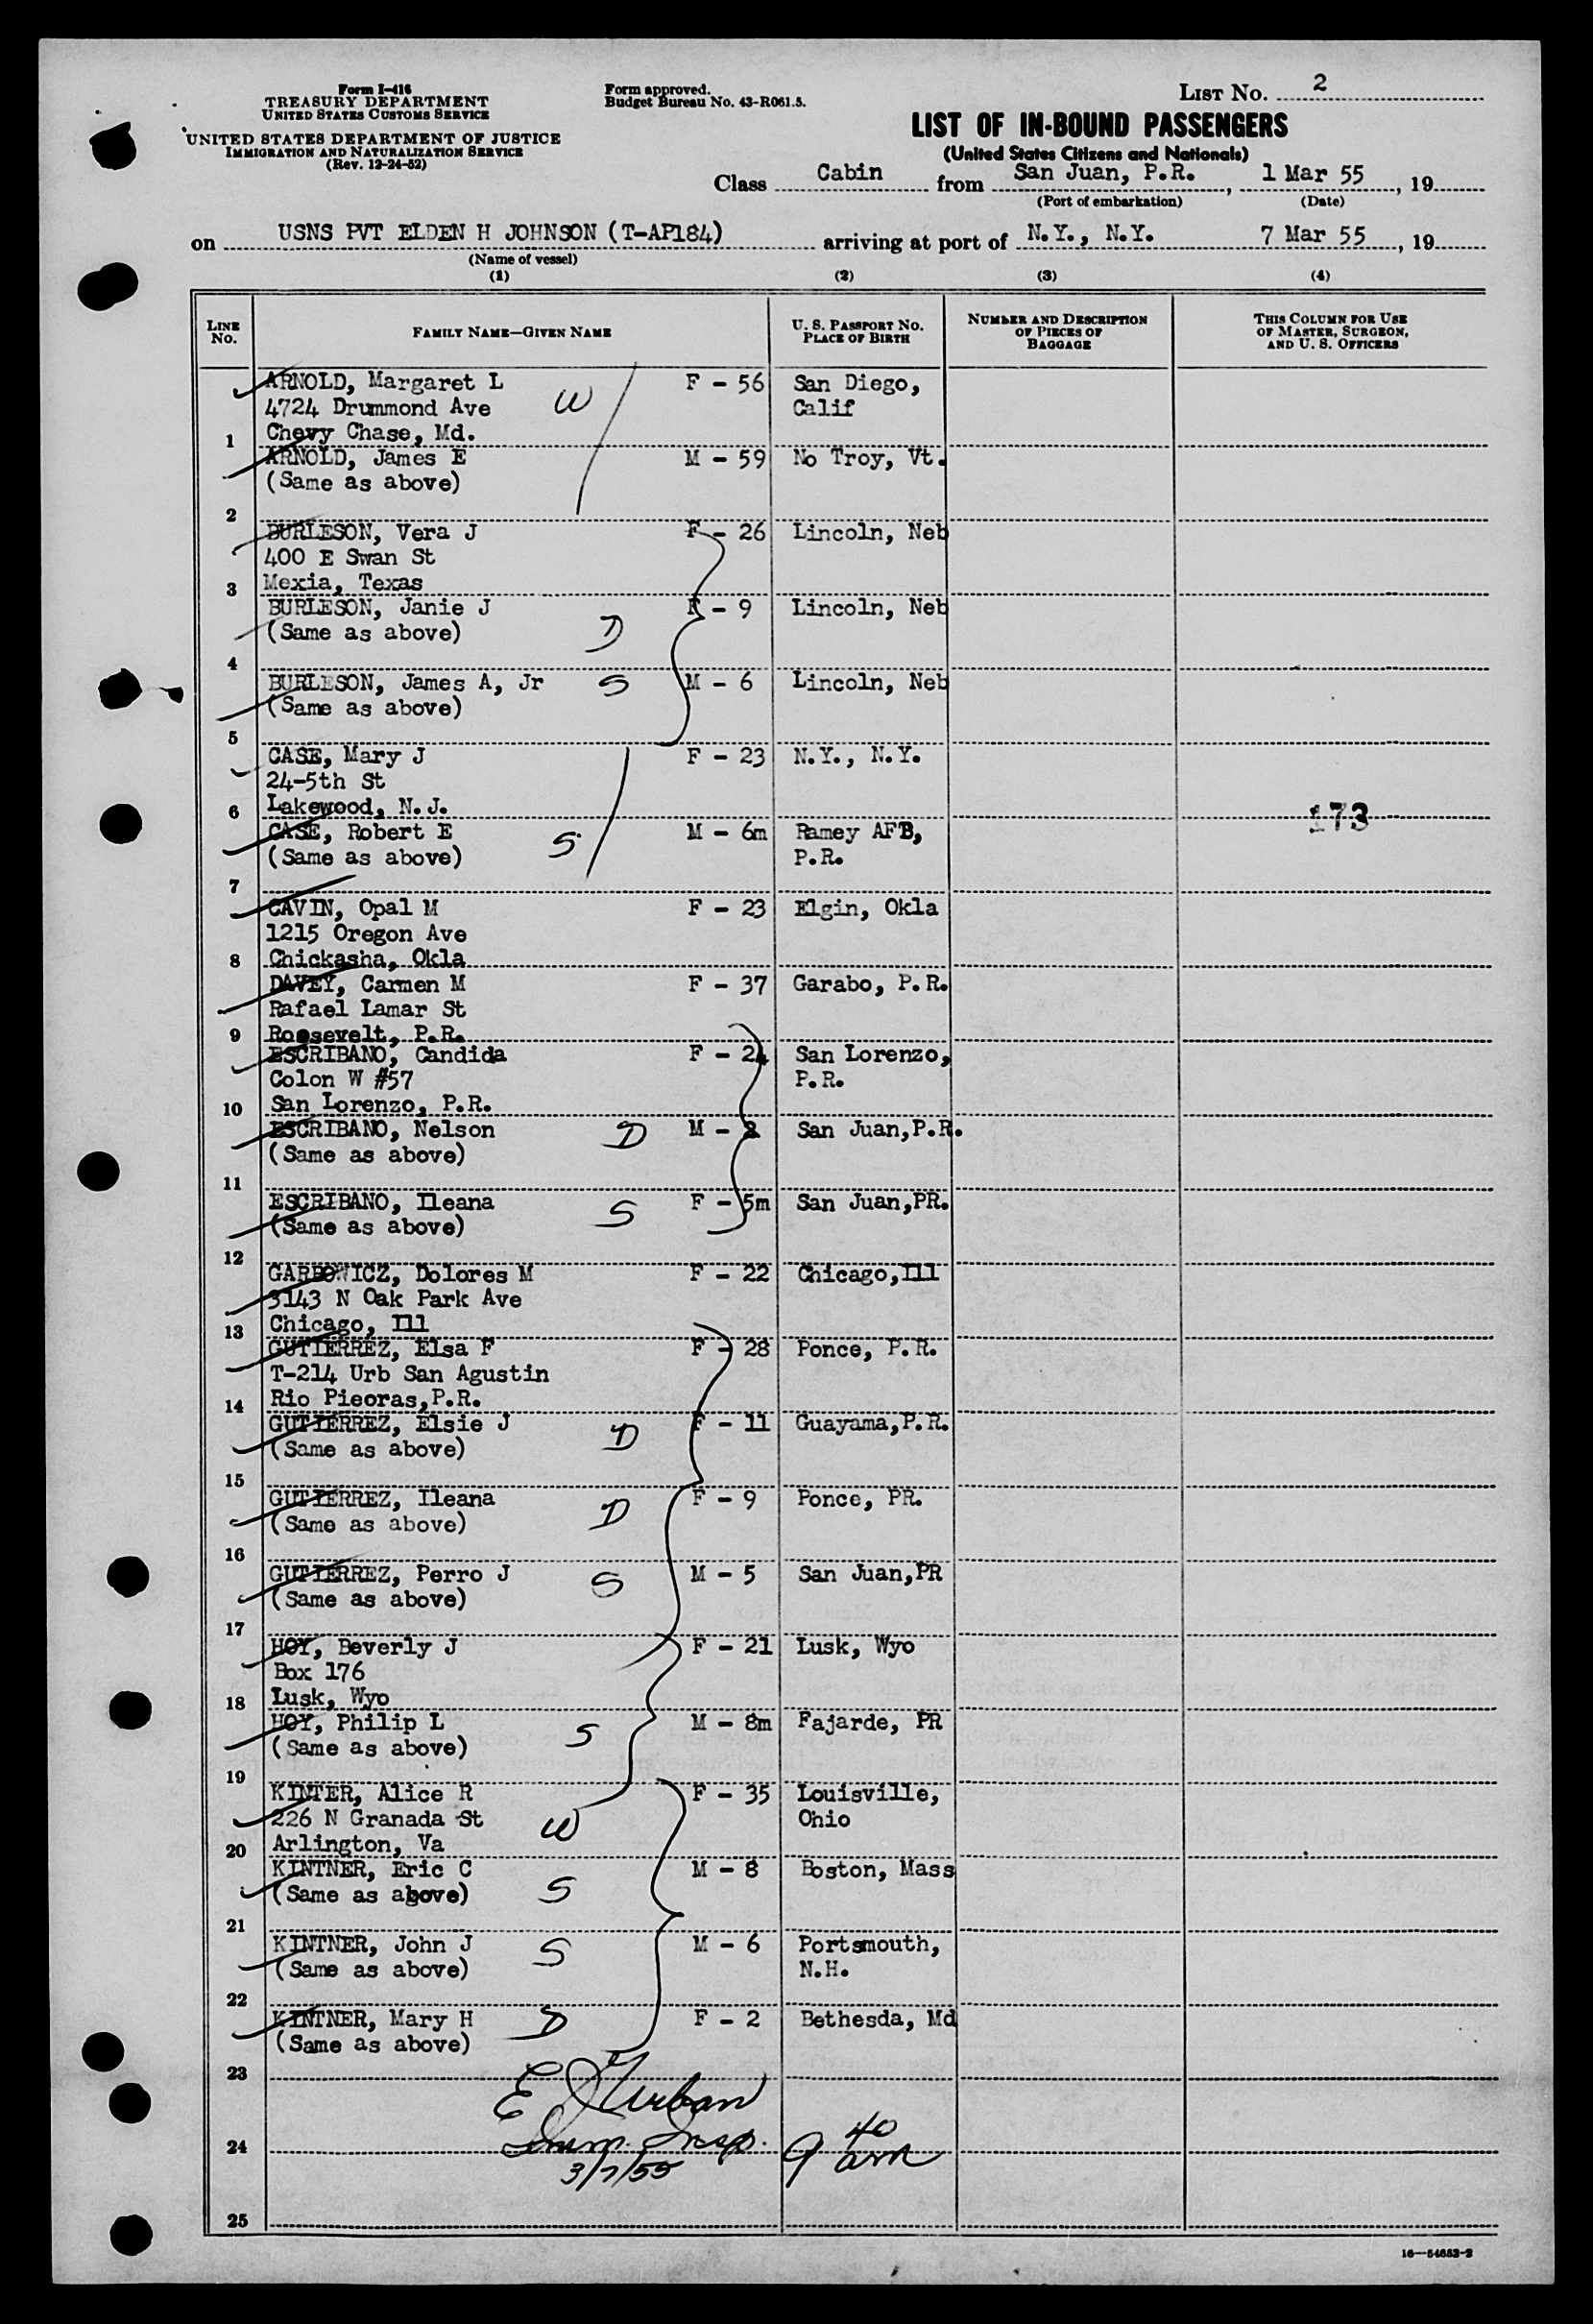 Form I-416
TREASURY DEPARTMENT
UNITED STATES CUSTOMS SERVICE
UNITED STATES DEPARTMENT OF JUSTICE
IMMIGRATION AND NATURALIZATION SERVICE
(Rev. 12-24-52)
Form approved.
Budget Bureau No. 43-R061.5.
LIST NO. 2
LIST OF IN-BOUND PASSENGERS
(United States Citizens and Nationals)
Class Cabin from San Juan, P.R., 1 Mar 55, 19
(Port of embarkation) (Date)
on USNS PVT ELDEN H JOHNSON (T-AP184) arriving at port of N.Y., N.Y. 7 Mar 55, 19
(Name of vessel)
(1) (2) (3) (4)
LINE NO. FAMILY NAME—GIVEN NAME U. S. PASSPORT NO. PLACE OF BIRTH NUMBER AND DESCRIPTION OF PIECES OF BAGGAGE THIS COLUMN FOR USE OF MASTER, SURGEON, AND U. S. OFFICERS
ARNOLD, Margaret L F - 56 San Diego,
4724 Drummond Ave W Calif
1 Chevy Chase, Md.
ARNOLD, James E M - 59 No Troy, Vt.
(Same as above)
2
BURLESON, Vera J F - 26 Lincoln, Neb
400 E Swan St
3 Mexia, Texas
BURLESON, Janie J F - 9 Lincoln, Neb
(Same as above) D
4
BURLESON, James A, Jr S M - 6 Lincoln, Neb
(Same as above)
5
CASE, Mary J F - 23 N.Y., N.Y.
24-5th St
6 Lakewood, N.J. 173
CASE, Robert E S M - 6m Ramey AFB,
(Same as above) P.R.
7
CAVIN, Opal M F - 23 Elgin, Okla
1215 Oregon Ave
8 Chickasha, Okla
DAVEY, Carmen M F - 37 Garabo, P.R.
Rafael Lamar St
9 Roosevelt, P.R.
ESCRIBANO, Candida F - 24 San Lorenzo,
Colon W #57 P.R.
10 San Lorenzo, P.R.
ESCRIBANO, Nelson D M - 2 San Juan,P.R.
(Same as above)
11
ESCRIBANO, Ileana S F - 5m San Juan,PR.
(Same as above)
12
GARBOWICZ, Dolores M F - 22 Chicago,Ill
3143 N Oak Park Ave
13 Chicago, Ill
GUTIERREZ, Elsa F F - 28 Ponce, P.R.
T-214 Urb San Agustin
14 Rio Pieoras,P.R.
GUTIERREZ, Elsie J D F - 11 Guayama,P.R.
(Same as above)
15
GUTIERREZ, Ileana D F - 9 Ponce, PR.
(Same as above)
16
GUTIERREZ, Perro J S M - 5 San Juan,PR
(Same as above)
17
HOY, Beverly J F - 21 Lusk, Wyo
Box 176
18 Lusk, Wyo
HOY, Philip L S M - 8m Fajarde, PR
(Same as above)
19
KINTER, Alice R F - 35 Louisville,
226 N Granada St W Ohio
20 Arlington, Va
KINTNER, Eric C S M - 8 Boston, Mass
(Same as above)
21
KINTNER, John J S M - 6 Portsmouth,
(Same as above) N.H.
22
KINTNER, Mary H D F - 2 Bethesda, Md
(Same as above)
23
E J Urban
24 Imm. Insp. 9 40 am
3/7/55
25
16—54653-2